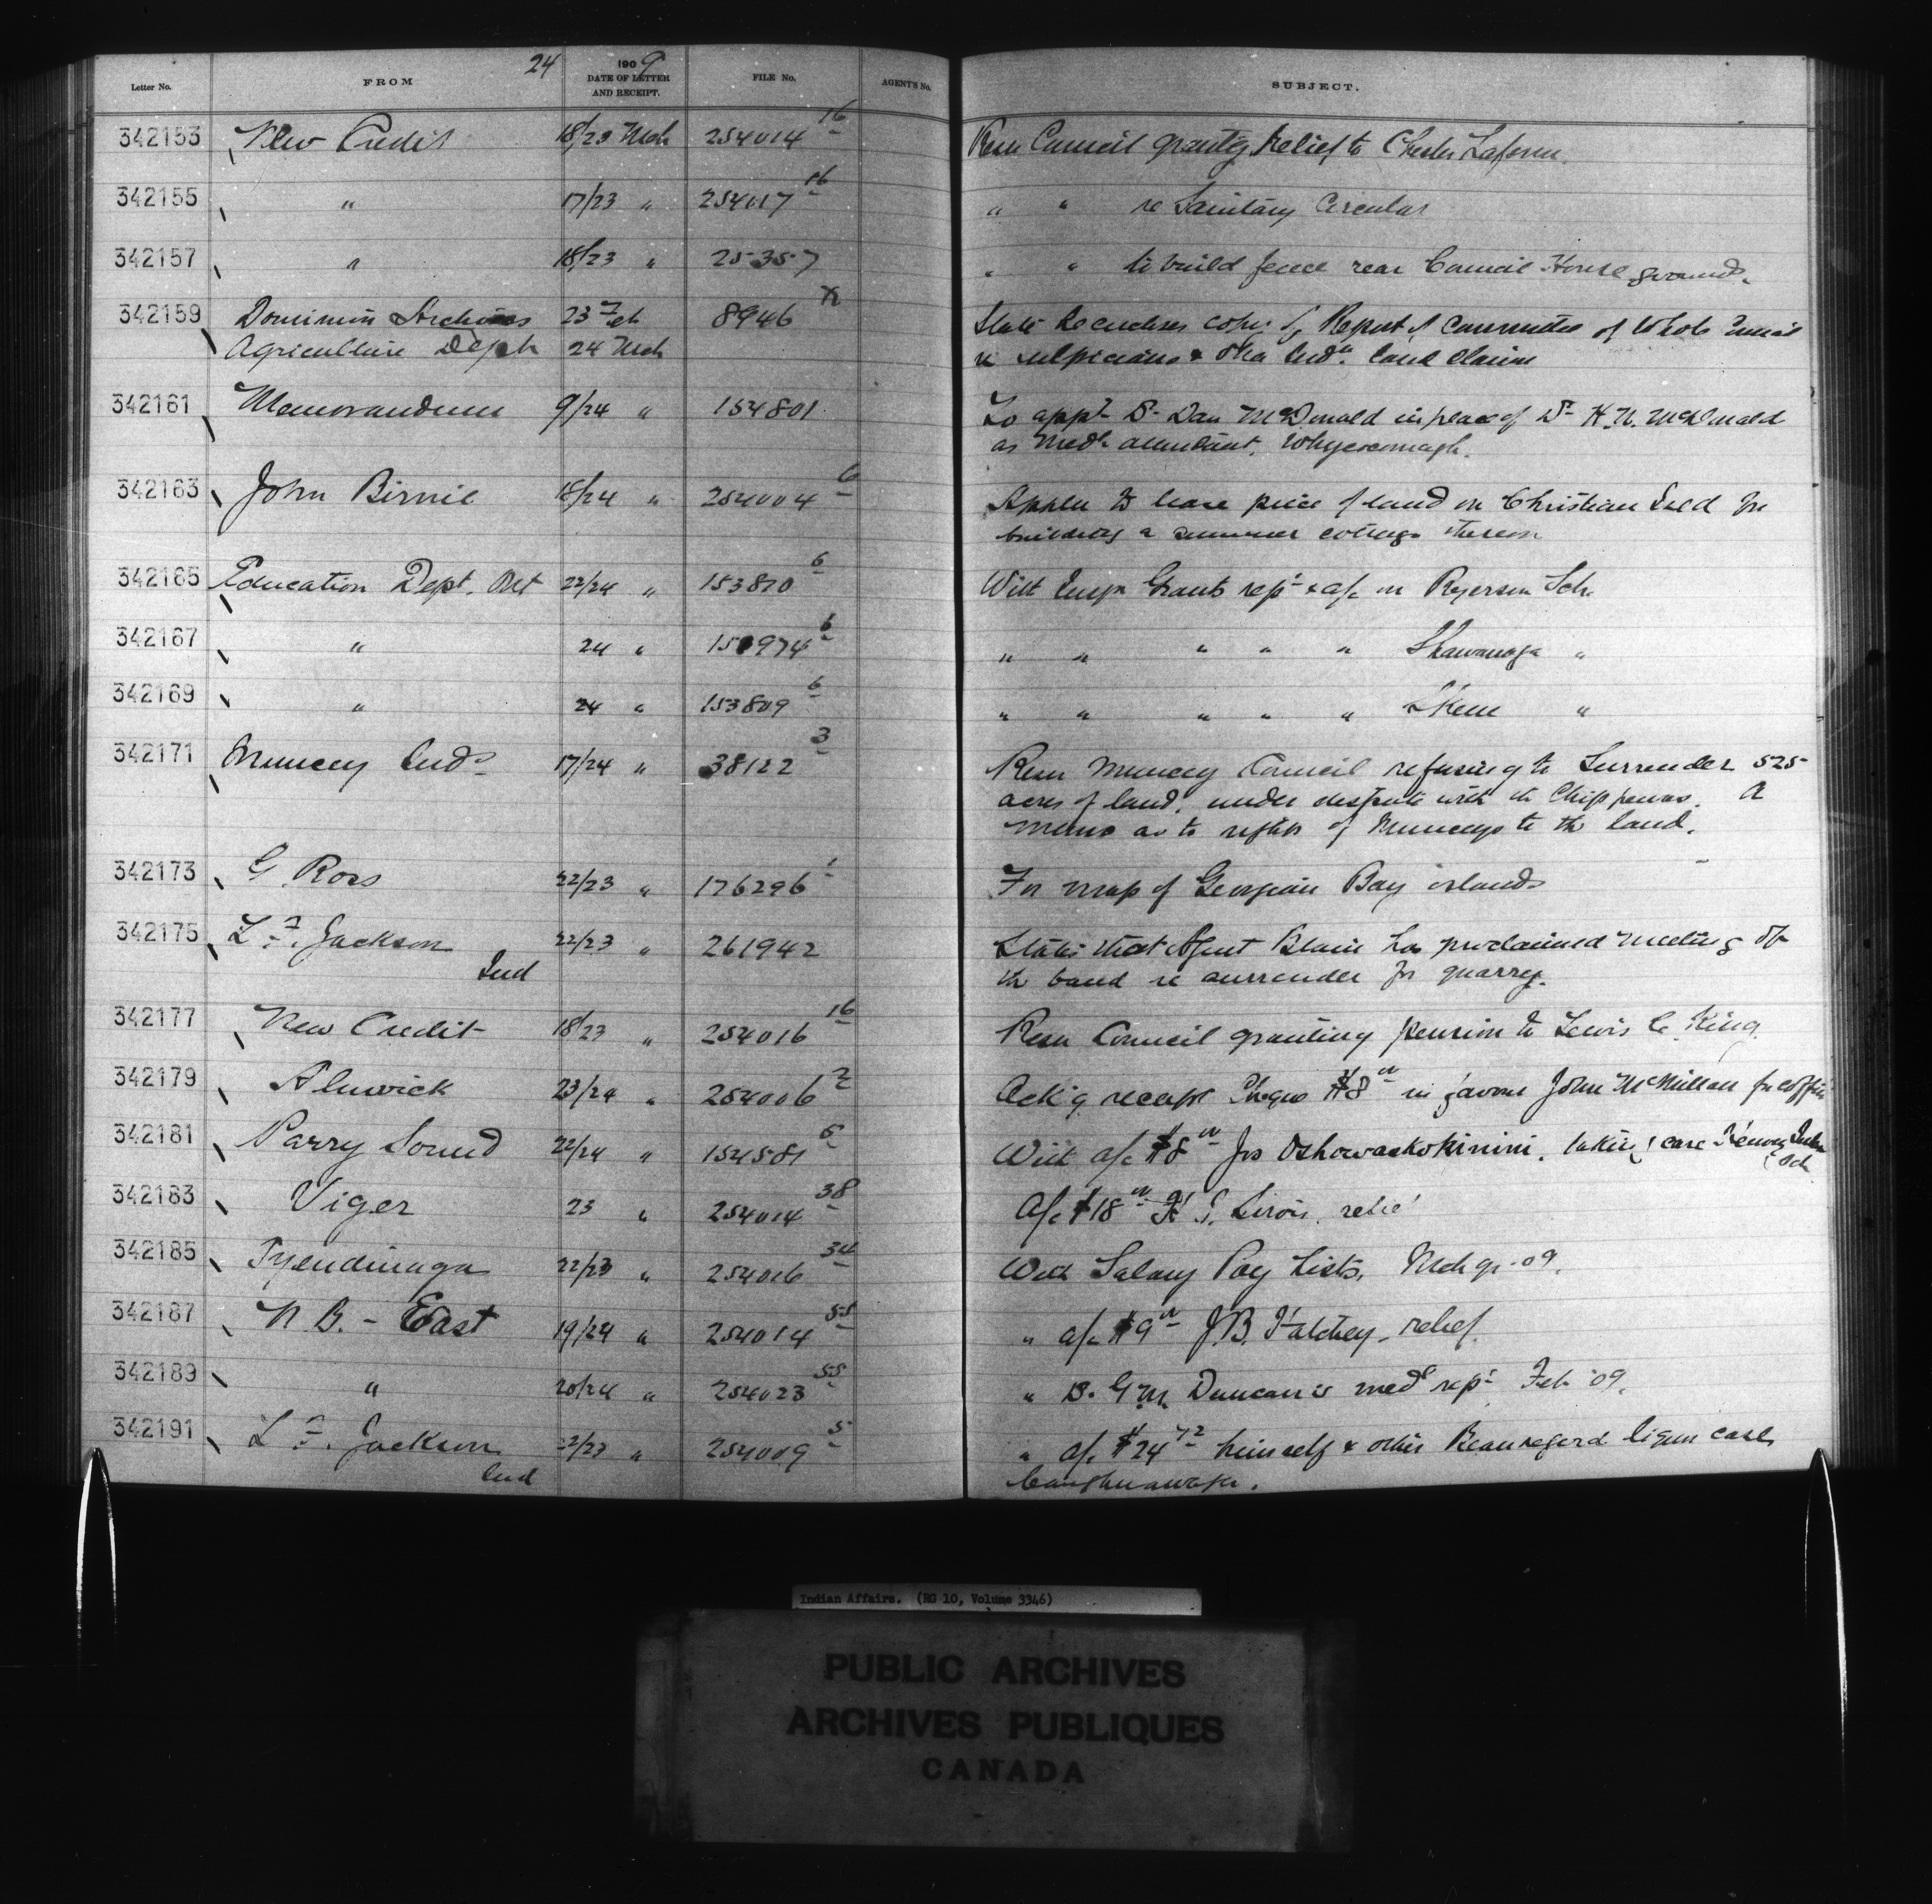 24
Letter No. FROM 1909 DATE OF LETTER AND RECEIPT. FILE No. AGENT'S No. SUBJECT.
342153 New Credit 18/23 Mch 254014 16 Resn Council grantg Relief to Chester Laform.
342155 " 17/23 " 254017 16 " " re Sanitary Circular
342157 " 18/23 " 25357 " " to build fence rear Council House grounds.
342159 Dominion Archives 23 Feb 8946 State he encloses copy of Report of Committee of whole Council
Agriculture Dept 24 Mch re Sulpicians & Oka Inds. land claim
342161 Memorandum 9/24 " 154801 To appt Dr Dan McDonald in place of Dr H.N. McDonald
as Medl attendant, Whycocomagh.
342163 John Birnie 18/24 " 254004 6 Appln to lease piece of land on Christian Isld for
building a summer cottage thereon
342165 Education Dept. Ont 22/24 " 153810 6 With Inspr Grants rept & a/c on Ryerson Sch.
342167 " 24 " 150974 6 " " " " " Shawanaga "
342169 " 24 " 153809 6 " " " " " Skene "
342171 Muncey Inds 17/24 " 38122 3 Resn Muncey Council refusing to Surrender 525
acres of land, under dispute with the Chippewas. A
memo as to rights of Munceys to the land.
342173 G. Ross 22/23 " 176296 1 For map of Georgian Bay islands
342175 L. F. Jackson 22/23 " 261942 States that Agent Blain has proclaimed meeting of
Ind the band re surrender for quarry.
342177 New Credit 18/23 " 254016 16 Resn Council granting pension to Lewis C. King.
342179 Alnwick 23/24 " 254006 2 Ackg receipt Cheque $8 00 in favour John McMillan for coffin
342181 Parry Sound 22/24 " 154581 6 With a/c $8 00 Jos Oshowaskokinini, taking care Henvey Inlet
Sch
342183 Viger 23 " 254014 38 A/c $18 00 S. Sirois, relief
342185 Tyendinaga 22/23 " 254016 34 With Salary Pay Lists, Mch qr. 09.
342187 N.B. - East 19/24 " 254014 55 " a/c $9 00 J.B. relief.
342189 " 20/24 " 254023 55 " Dr. G.M. Duncan's medl rept Feb '09.
342191 L. F. Jackson 22/23 " 254009 5 " a/c $24 72 himself & other Beauregard liquor case,
Ind Caughnawaga.
Indian Affairs. (RG 10, Volume 3346)
PUBLIC ARCHIVES
ARCHIVES PUBLIQUES
CANADA